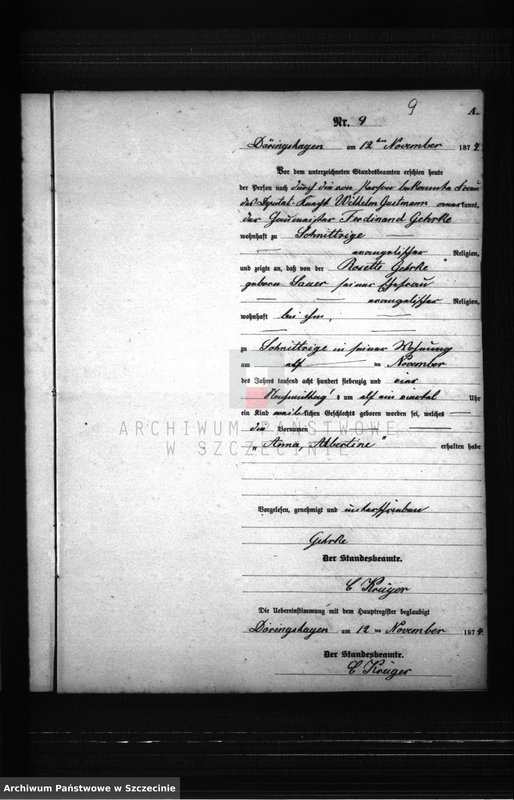 9
A.
Nr. 9
Döringshagen am 12ten November 1874
Vor dem unterzeichneten Standesbeamten erschien heute
der Person nach durch die von Person bekannte Frau
des Deputat-Knecht Wilhelm Gustmann anerkannt,
der Hausmeister Ferdinand Gehrke
wohnhaft zu Schnittrige
evangelischer Religion,
und zeigte an, daß von der Rosette Gehrke
geboren Sauer seiner Ehefrau
evangelischer Religion,
wohnhaft bei ihm,
zu Schnittrige in seiner Wohnung
am elf ten November
des Jahres tausend acht hundert siebenzig und vier
Nachmittags um elf ein viertel Uhr
ein Kind weiblichen Geschlechts geboren worden sei, welches
die Vornamen
„Anna, Albertine" erhalten habe
Vorgelesen, genehmigt und unterschrieben
Gehrke
Der Standesbeamte.
C Krüger
Die Uebereinstimmung mit dem Hauptregister beglaubigt
Döringshagen am 12 ten November 1874
Der Standesbeamte.
C Krüger
ARCHIWUM PAŃSTWOWE
W SZCZECINIE
Archiwum Państwowe w Szczecinie